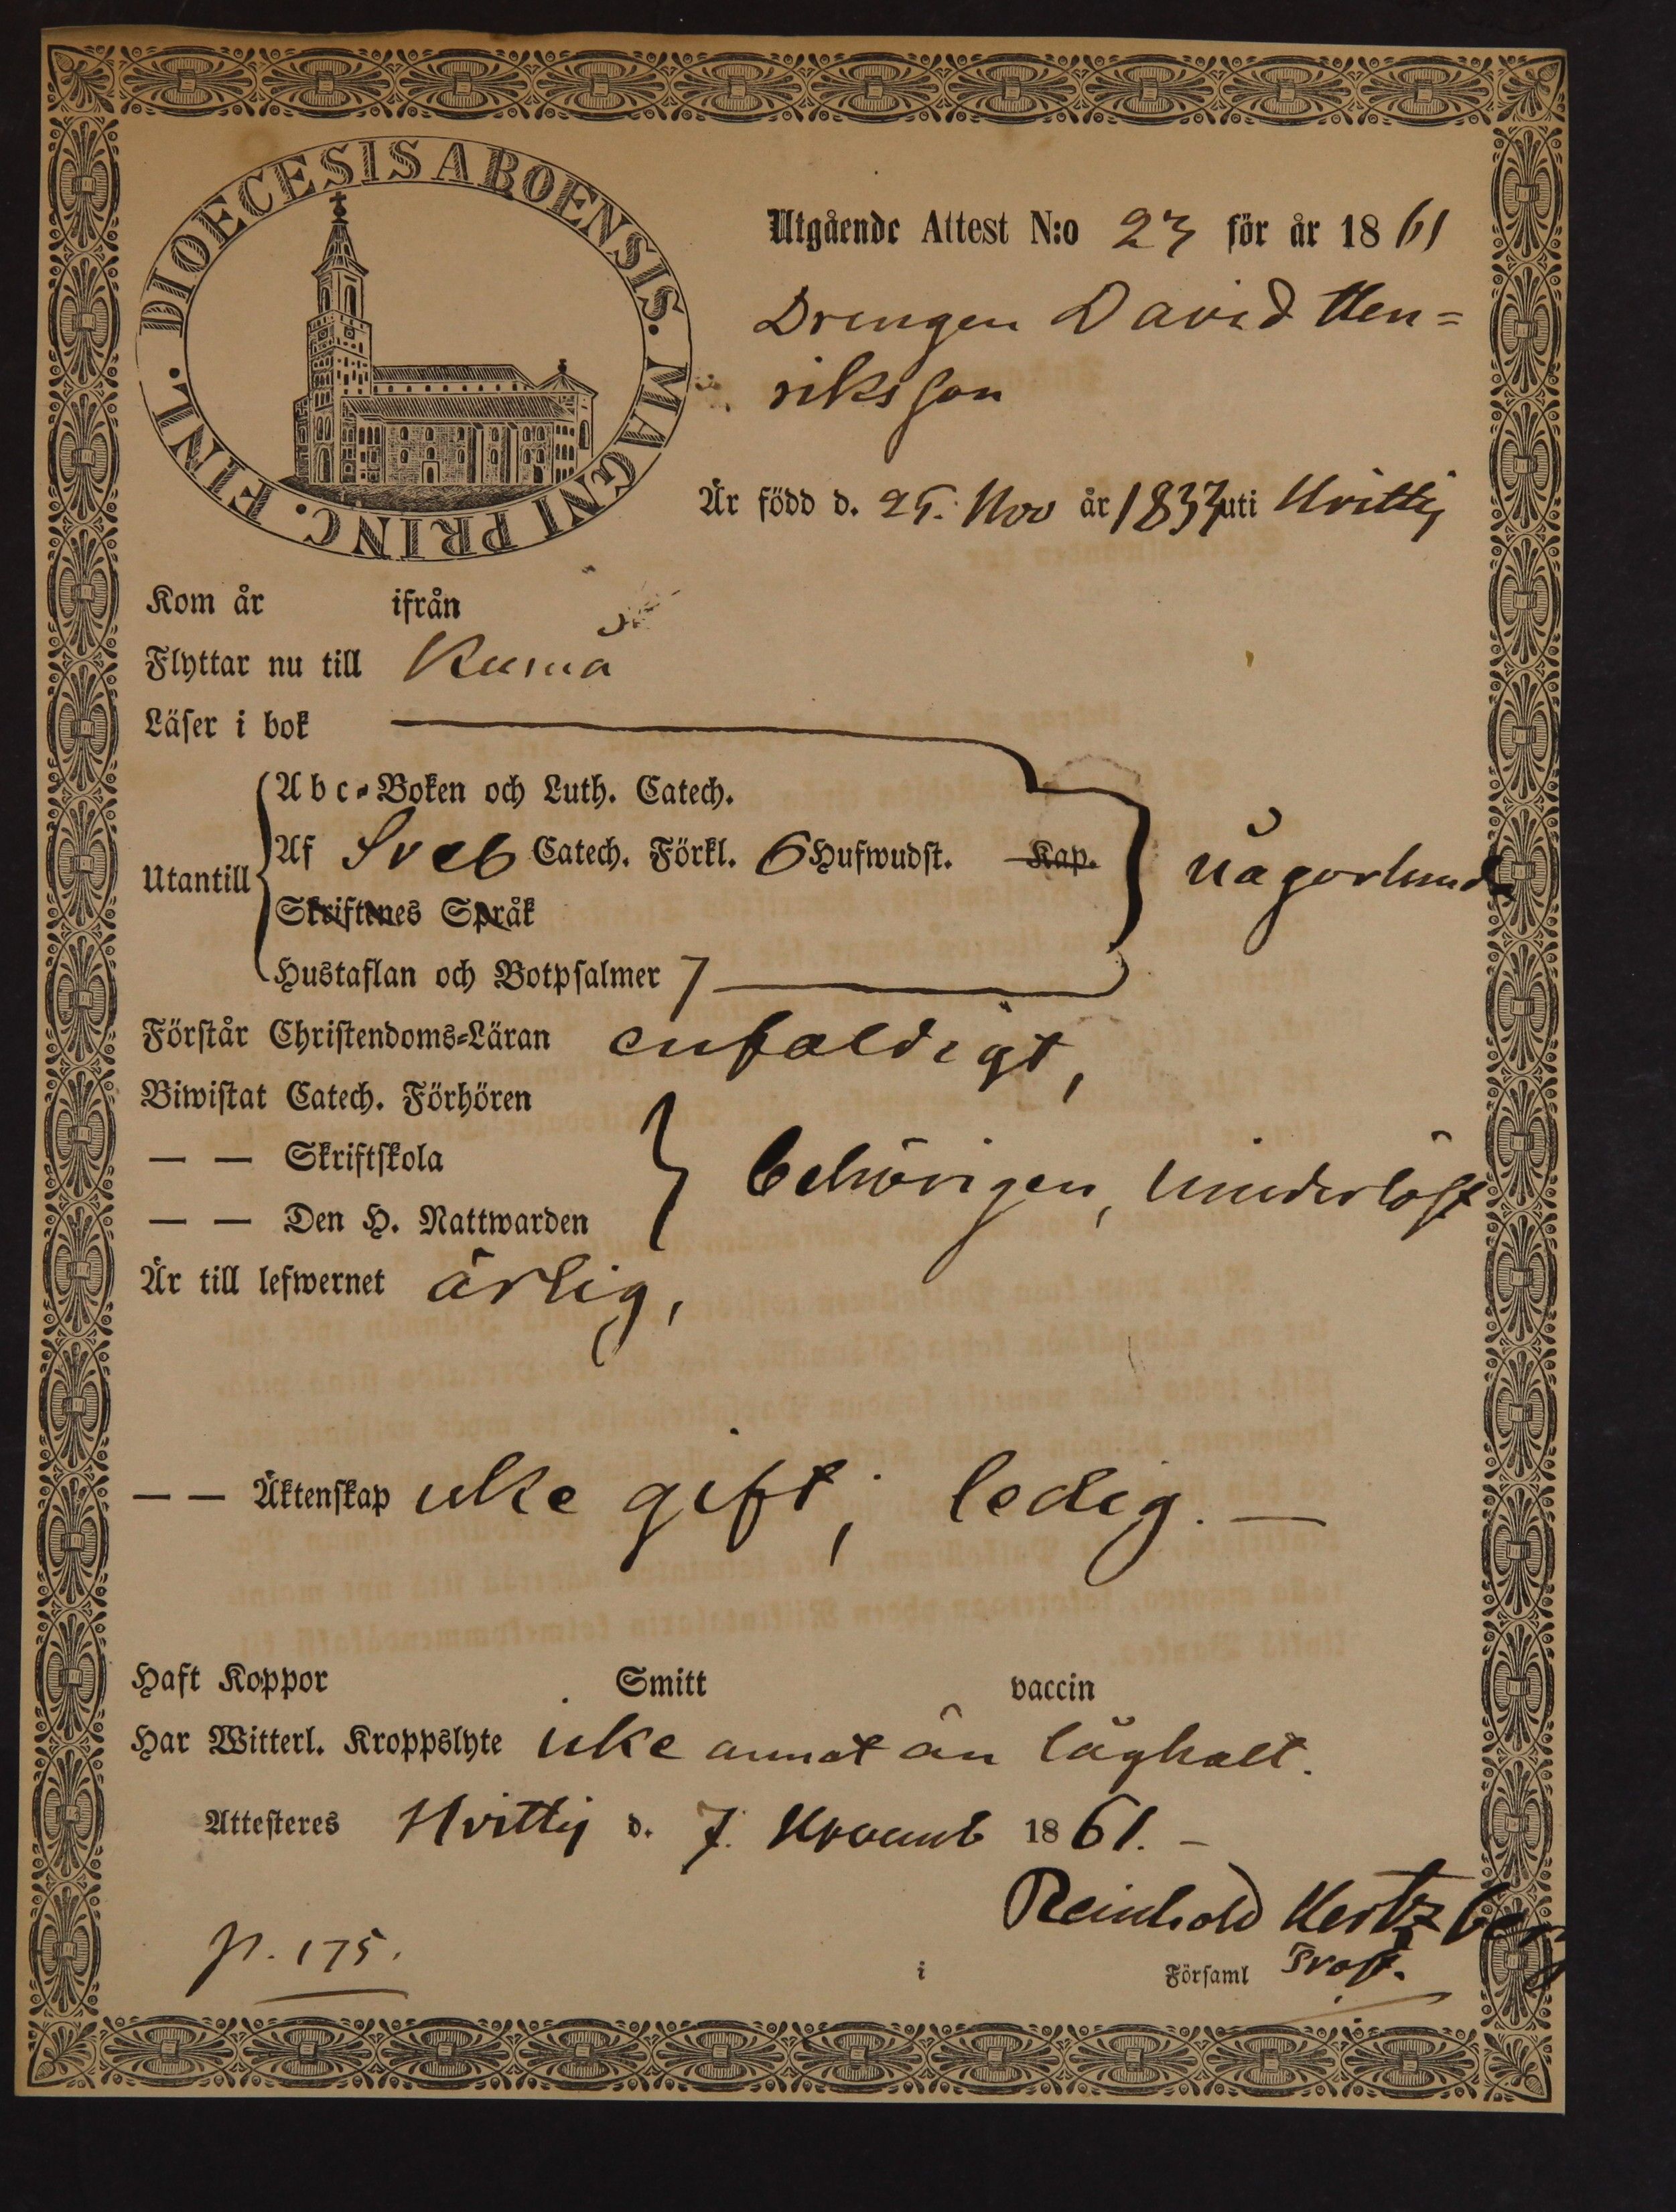 DIOECESIS ABOENSIS. MAGNI PRINC. FINL.
Utgående Attest N:o 23 för år 1861
Drengen David Hen=
riksson
Är född d. 25. Nov år 1837 uti Hvittis
Kom år ifrån
Flyttar nu till Kumå
Läser i bok
Abc-Boken och Luth. Catech.
Utantill Af Sveb Catech. Förkl. 6 Hufwudst. Kap. någorlunda
Skriftenes Språk
Hustaflan och Botpsalmer 7
Förstår Christendoms-Läran enfaldigt,
Biwistat Catech. Förhören
— — Skriftskola
behörigen,
— — Den H. Nattwarden
Är till lefwernet ärlig,
— — Äktenskap icke gift; ledig. —
Haft Koppor Smitt vaccin
Har Witterl. Kroppslyte icke annat än låghalt.
Attesteres Hvittis d. 7. Novemb 1861. —
Reinhold Hertzberg
p. 175. i Församl Prost.